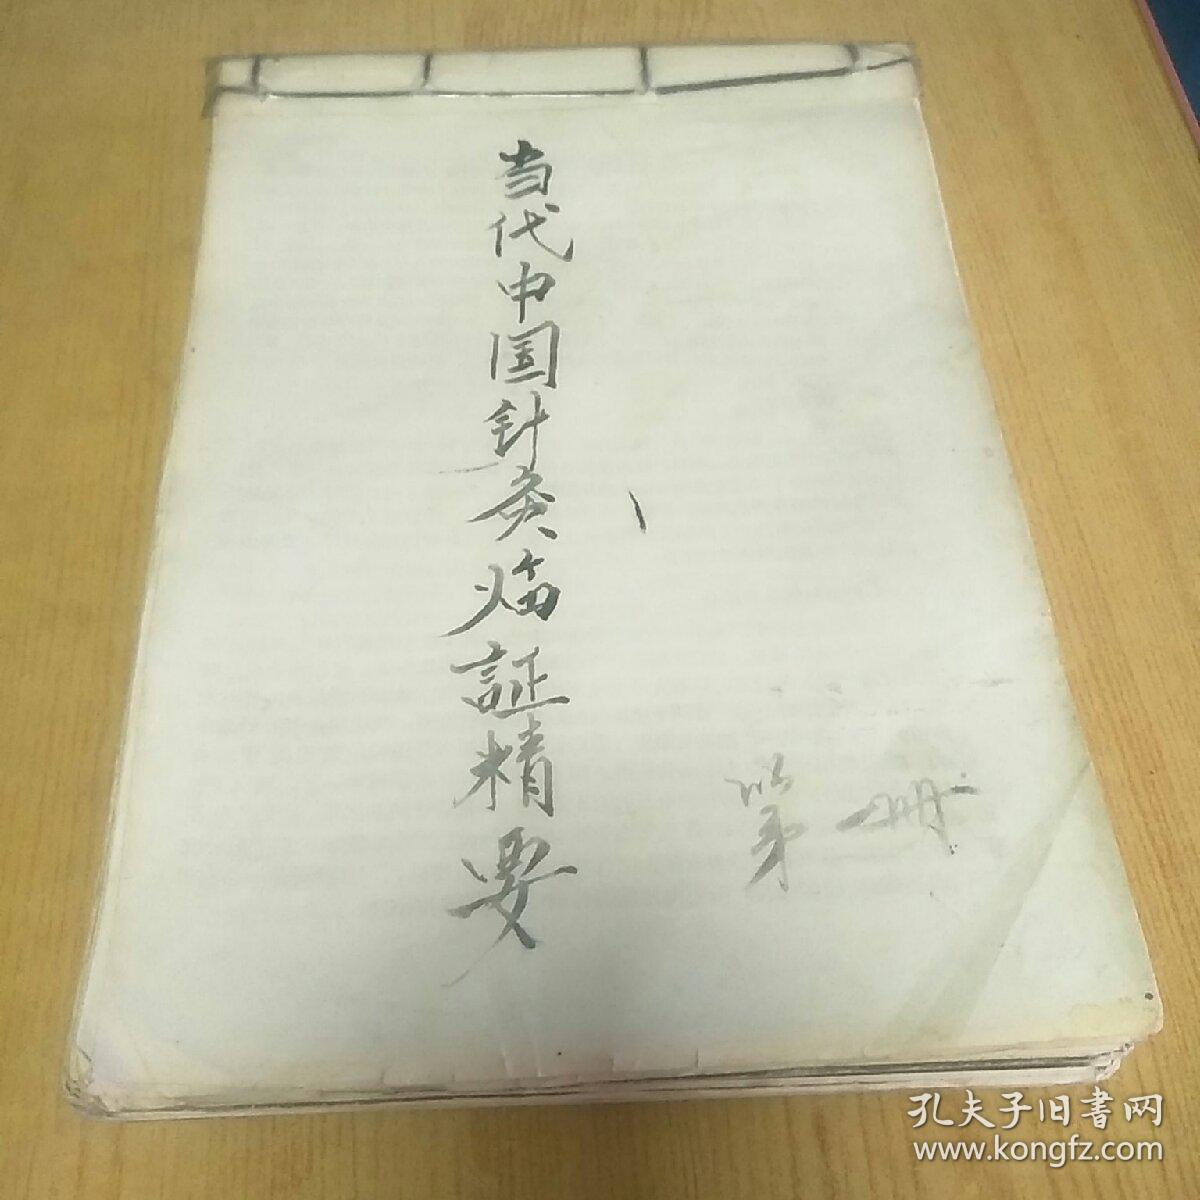 当代中国针灸临証精要
第一册
孔夫子旧書网
www.kongfz.com